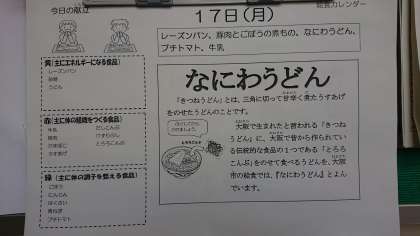 今日の献立
給食カレンダー
17日(月)
レーズンパン、豚肉とごぼうの煮もの、なにわうどん、
プチトマト、牛乳
黄(主にエネルギーになる食品)
レーズンパン
砂糖
うどん
赤(主に体の組織をつくる食品)
牛乳 だしこんぶ
豚肉 けずりぶし
かまぼこ とろろこんぶ
うすあげ
緑(主に体の調子を整える食品)
ごぼう
にんじん
はくさい
青ねぎ
プチトマト
なにわうどん
「きつねうどん」とは、三角に切って甘辛く煮たうすあげ
をのせたうどんのことです。
大阪で生まれたと言われる「きつね
うどん」に、大阪で昔から作られてい
る伝統的な食品の1つである「とろろ
こんぶ」をのせて食べるうどんを、大阪
市の給食では、『なにわうどん』とよん
でいます。